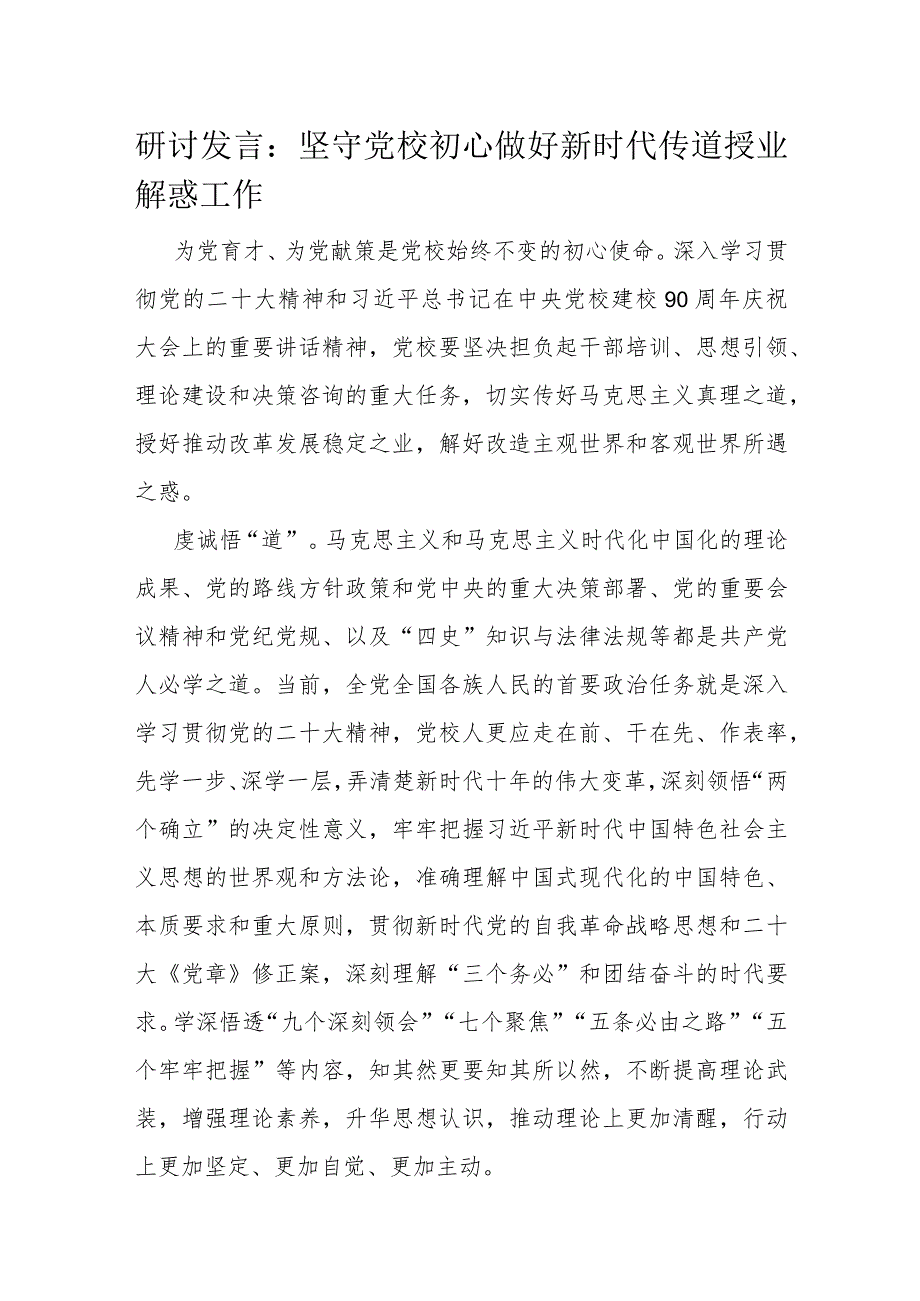 研讨发言：坚守党校初心做好新时代传道授业
解惑工作
为党育才、为党献策是党校始终不变的初心使命。深入学习贯
彻党的二十大精神和习近平总书记在中央党校建校 90 周年庆祝
大会上的重要讲话精神，党校要坚决担负起干部培训、思想引领、
理论建设和决策咨询的重大任务，切实传好马克思主义真理之道，
授好推动改革发展稳定之业，解好改造主观世界和客观世界所遇
之惑。
虔诚悟“道”。马克思主义和马克思主义时代化中国化的理论
成果、党的路线方针政策和党中央的重大决策部署、党的重要会
议精神和党纪党规、以及“四史”知识与法律法规等都是共产党
人必学之道。当前，全党全国各族人民的首要政治任务就是深入
学习贯彻党的二十大精神，党校人更应走在前、干在先、作表率，
先学一步、深学一层，弄清楚新时代十年的伟大变革，深刻领悟“两
个确立”的决定性意义，牢牢把握习近平新时代中国特色社会主
义思想的世界观和方法论，准确理解中国式现代化的中国特色、
本质要求和重大原则，贯彻新时代党的自我革命战略思想和二十
大《党章》修正案，深刻理解“三个务必”和团结奋斗的时代要
求。学深悟透“九个深刻领会”“七个聚焦”“五条必由之路”“五
个牢牢把握”等内容，知其然更要知其所以然，不断提高理论武
装，增强理论素养，升华思想认识，推动理论上更加清醒，行动
上更加坚定、更加自觉、更加主动。